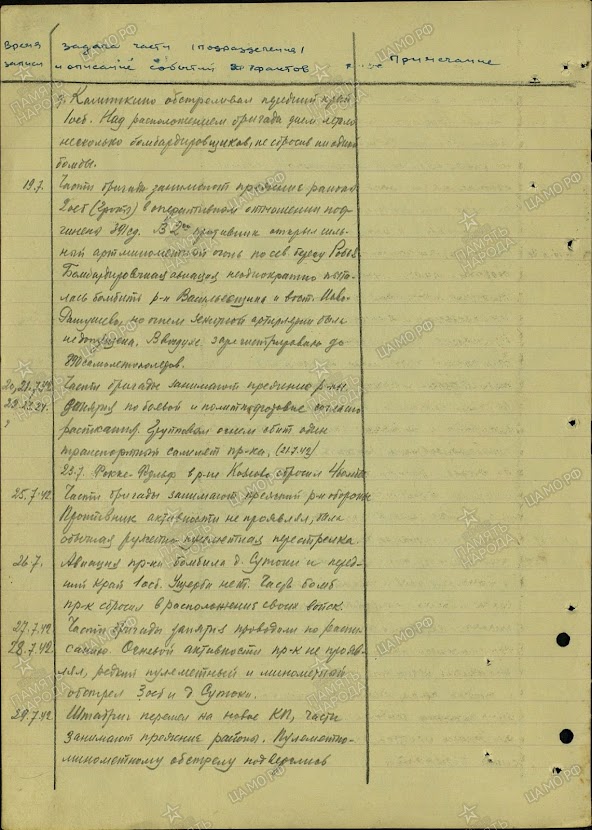 Время задача части (подразделения) Примечание
записи и описание событий и фактов
д. Калиткино обстреливал передний край
1осб. Над расположением бригады днем летало
несколько бомбардировщиков, не сбросив ни одной
бомбы.
19.7. Части бригады занимают прежние районы
2осб в оперативном отношении под-
чинена сд. В противник открыл силь-
ный артминометный огонь по сев. берегу
Бомбардировочная авиация неоднократно пыта-
лась бомбить р-н Васильевщина и вост. Ново-
но огнем зенитной артиллерии была
не допущена. В воздухе зарегистрировано до
самолетопролетов.
20, 21.7.42 Части бригады занимают прежние р-ны
занятия по боевой и политподготовке согласно
расписания. Групповым огнем сбит один
транспортный самолет пр-ка. (21.7.42)
23.7. Фокке-Вульф в р-не Козлово сбросил 4 бомбы
25.7.42 Части бригады занимают прежний р-н обороны
Противник активности не проявлял, шла
обычная ружейно-пулеметная перестрелка.
26.7. Авиация пр-ка бомбила д. Сутоки и перед-
ний край 1осб. Ущерба нет. Часть бомб
пр-к сбросил в расположение своих войск.
27.7.42 Части бригады занятия проводили по распи-
28.7.42 санию. Огневой активности пр-к не прояв-
лял, редкий пулеметный и минометный
обстрел 3осб и д Сутоки.
29.7.42 Штабриг перешел на новое КП, части
занимают прежние районы. Пулеметно-
минометному обстрелу подверглись
ПАМЯТЬ НАРОДА
ЦАМО.РФ